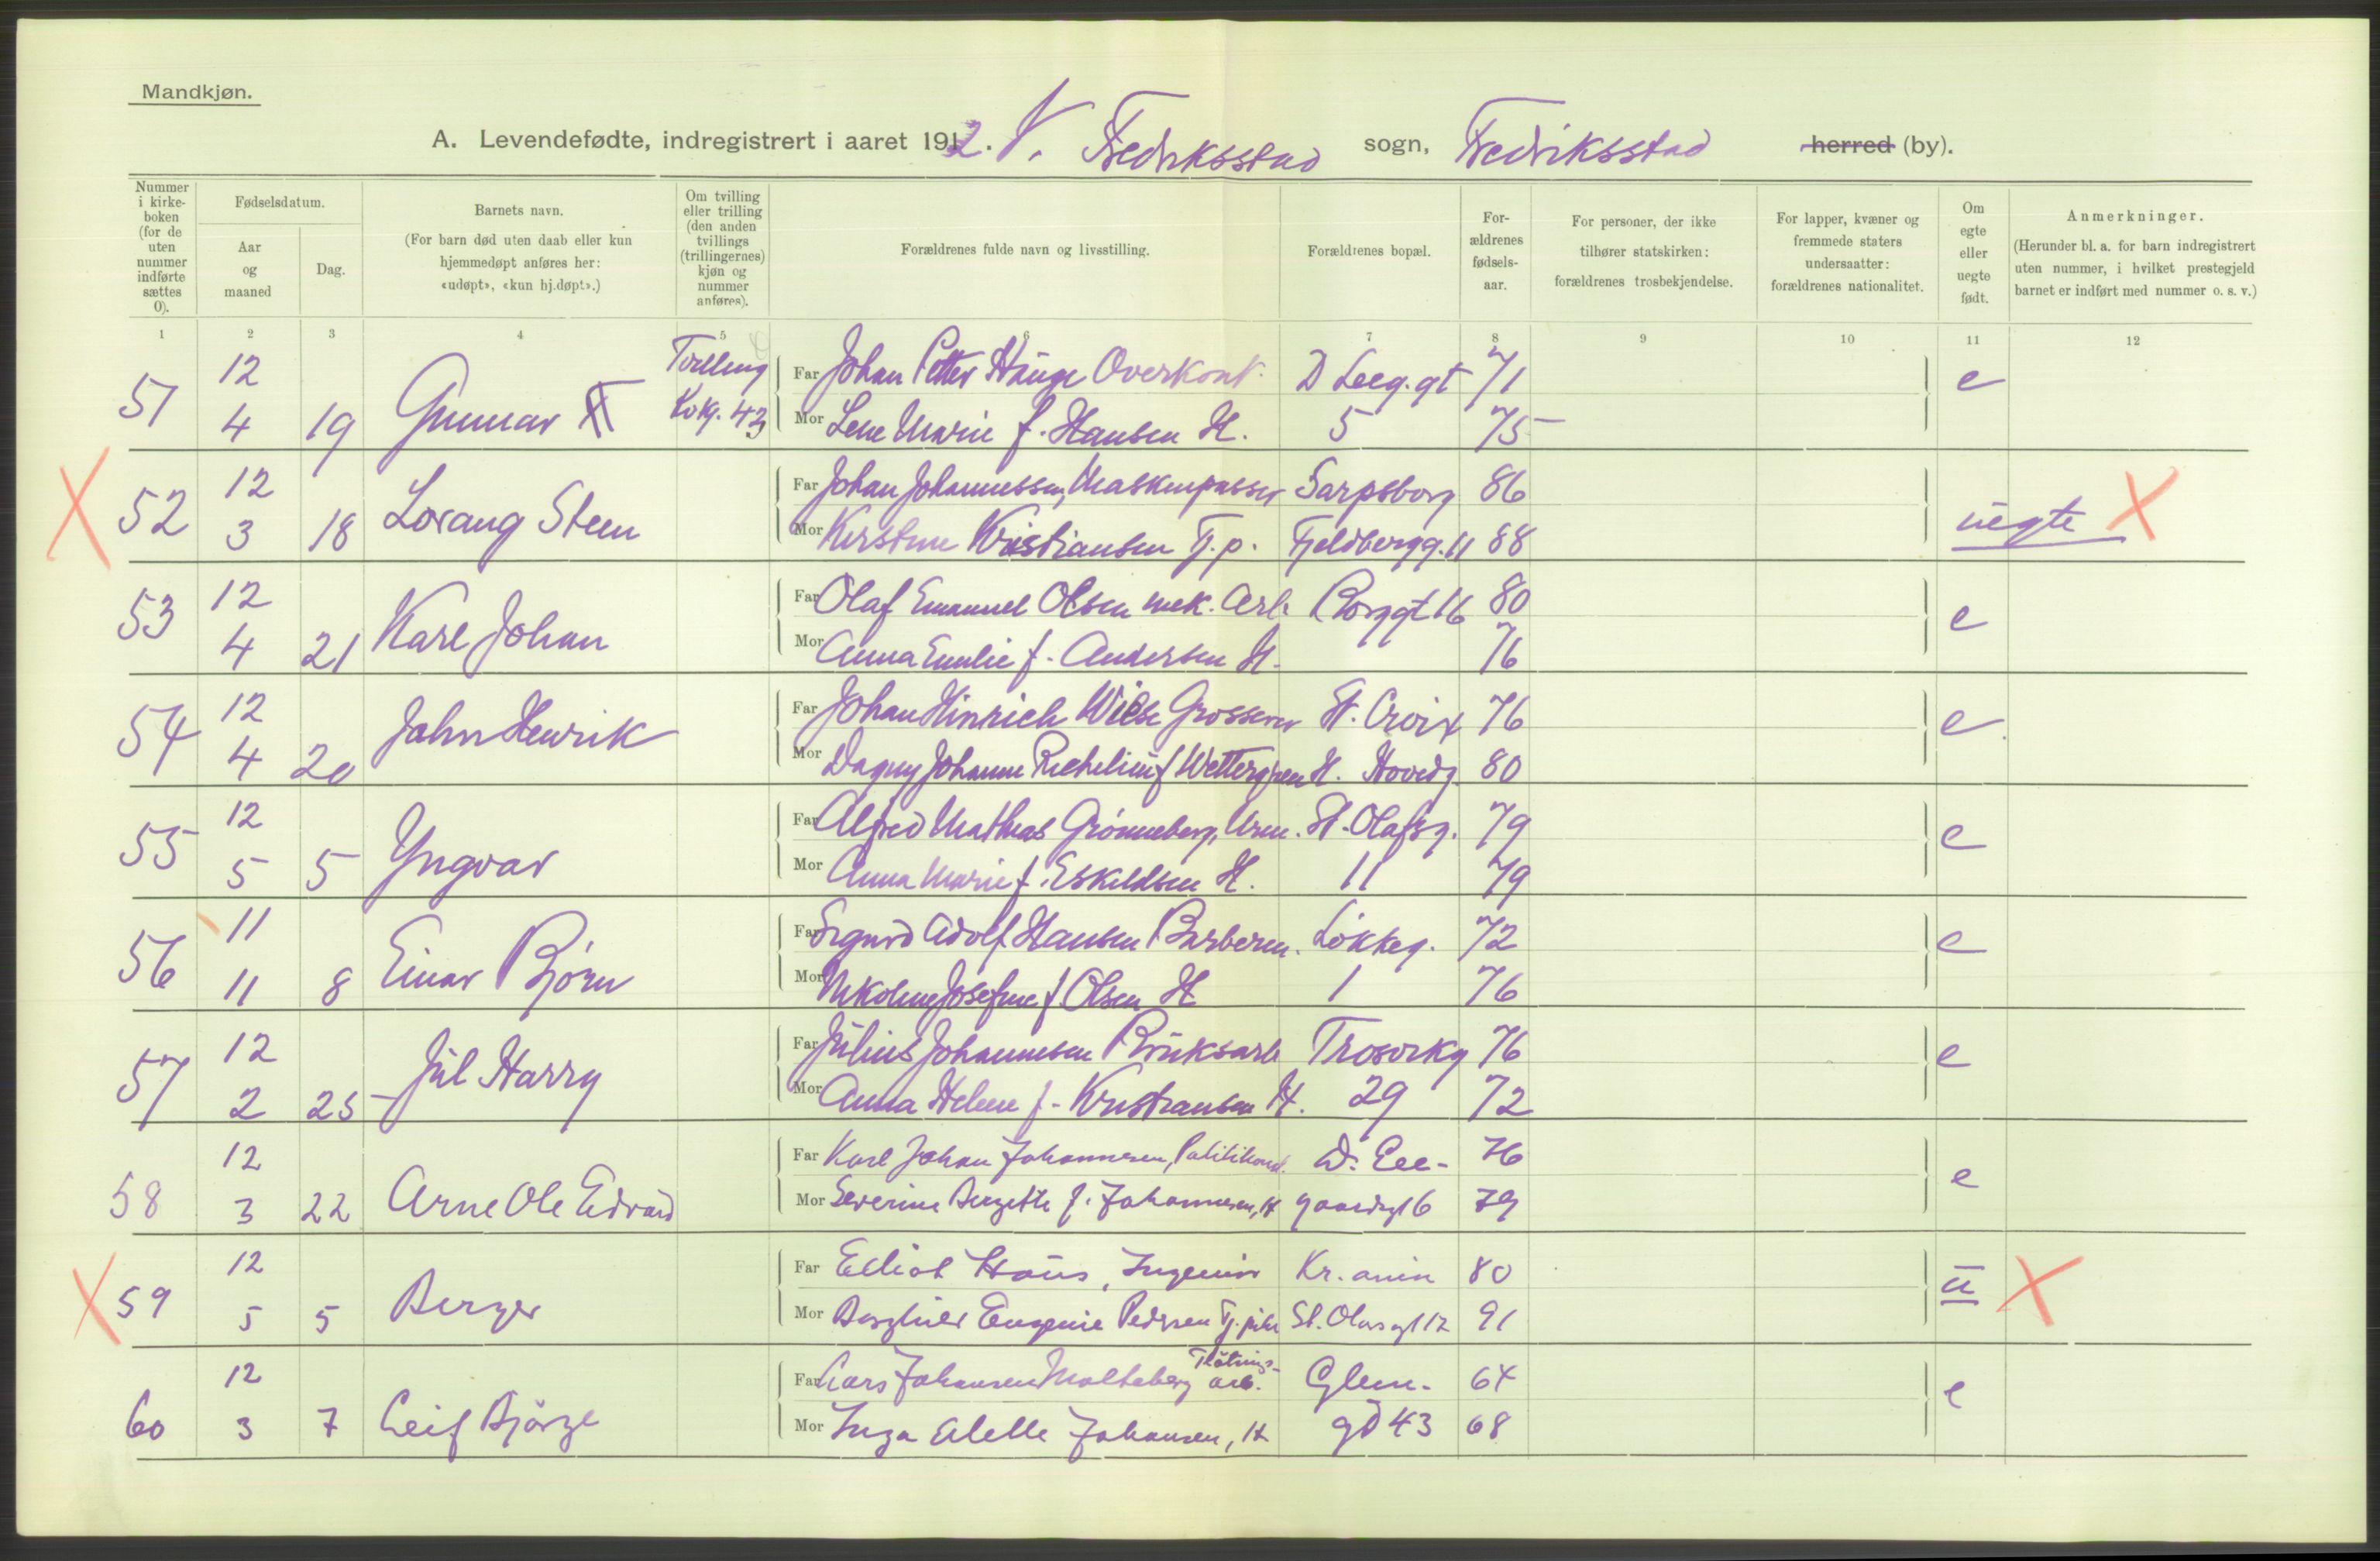 Mandkjøn.
A. Levendefødte, indregistrert i aaret 1912. V. Fredriksstad sogn, Fredriksstad herred (by).
Nummer i kirke-boken (for de uten nummer indførte sættes 0).
Fødselsdatum.
Aar og maaned
Dag.
Barnets navn.
(For barn død uten daab eller kun hjemmedøpt anføres her: «udøpt», «kun hj.døpt».)
Om tvilling eller trilling (den anden tvillings (trillingernes) kjøn og nummer anføres).
Forældrenes fulde navn og livsstilling.
Forældrenes bopæl.
For-ældrenes fødsels-aar.
For personer, der ikke tilhører statskirken: forældrenes trosbekjendelse.
For lapper, kvæner og fremmede staters undersaatter: forældrenes nationalitet.
Om egte eller uegte født.
Anmerkninger.
(Herunder bl. a. for barn indregistrert uten nummer, i hvilket prestegjeld barnet er indført med nummer o. s. v.)
1 2 3 4 5 6 7 8 9 10 11 12
51 12 4 19 Gunnar Tvilling Kvkj. 43
Far Johan Petter Hauge Overkont. D Leeg.gt 71 e
Mor Lene Marie f. Hansen H. 5 75
52 12 3 18 Lorang Steen
Far Johan Johannessen, Maskinpasser Sarpsborg 86 uegte X
Mor Kirstine Kristiansen Tj.p. Fjeldbergg. 11 88
53 12 4 21 Karl Johan
Far Olaf Emanuel Olsen mek. Arb. Borggt 16 80 e
Mor Anna Emilie f. Andersen H. 76
54 12 4 20 John Henrik
Far Johan Hinrich Wiese Grosserer St. Croix 76 e
Mor Dagny Johanne Richelieu f Wettergren H. Hovedg. 80
55 12 5 5 Yngvar
Far Alfred Mathias Grønneberg, Urm. St. Olafsg. 79 e
Mor Anna Marie f. Eskildsen H. 11 79
56 11 11 8 Einar Bjørn
Far Sigurd Adolf Hansen Barberm. Løkkeg. 72 e
Mor Nikoline Josefine f. Olsen H 1 76
57 12 2 25 Jul Harry
Far Julius Johannesen Bruksarb Trosvikg 76 e
Mor Anna Helene f. Kristiansen H. 29 72
58 12 3 22 Arne Ole Edvard
Far Karl Johan Johannesen, Politikonst. D. Lee- 76 e
Mor Severine Bergitte f. Johannesen, H gaardsgt 6 79
59 12 5 5 Berger
Far Elliot Haus, Ingeniør Kr.ania 80 u X
Mor Borghild Eugenie Pedersen Tj.pike St. Olavsgt 12 91
60 12 3 7 Leif Bjørge
Far Lars Johansen Molteberg Fløtningsarb. Glem- 64 e
Mor Inga Alette Johansen, H gd 43 68